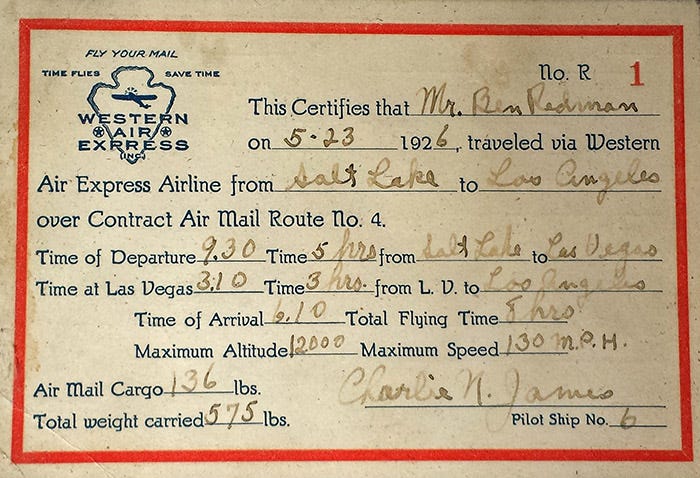 FLY YOUR MAIL
TIME FLIES SAVE TIME
WESTERN
AIR
EXPRESS
(INC)
No. R 1
This Certifies that Mr. Ben Redman
on 5-23 1926, traveled via Western
Air Express Airline from Salt Lake to Los Angeles
over Contract Air Mail Route No. 4.
Time of Departure 9.30 Time 5 hrs from Salt Lake to Las Vegas
Time at Las Vegas 3:10 Time 3 hrs. from L. V. to Los Angeles
Time of Arrival 6.10 Total Flying Time 8 hrs
Maximum Altitude 12000 Maximum Speed 130 M.P.H.
Air Mail Cargo 136 lbs.
Charlie N. James
Total weight carried 575 lbs.
Pilot Ship No. 6